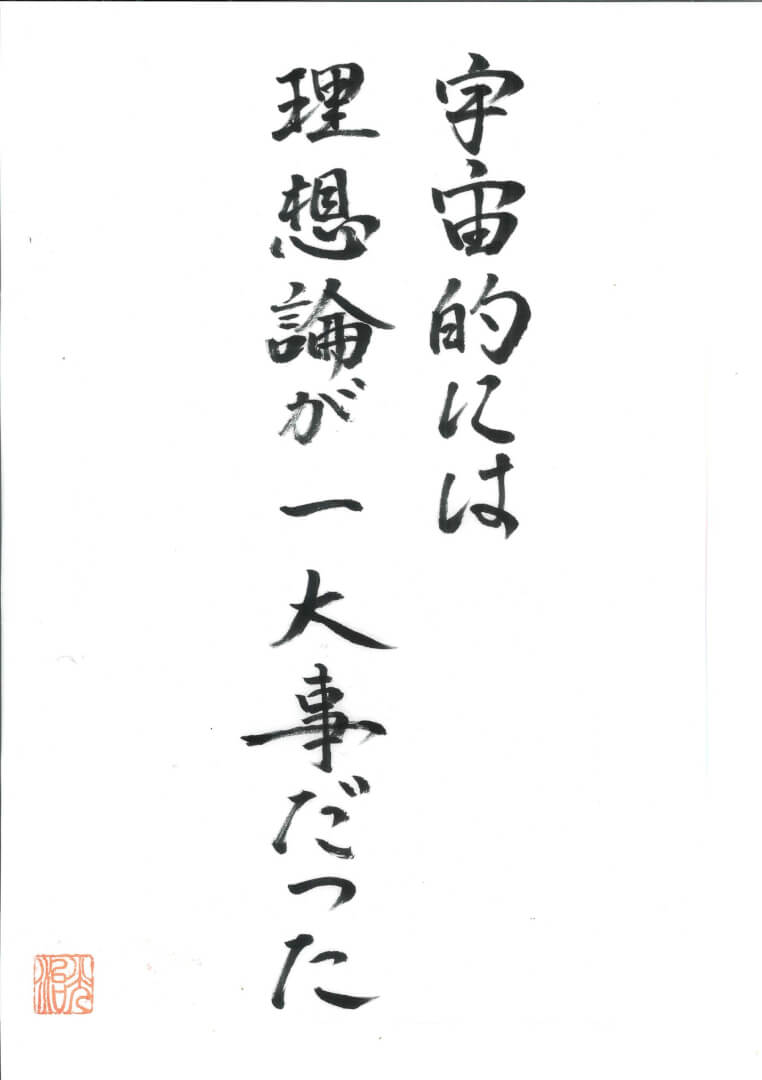 宇宙的には
理想論が一大事だった